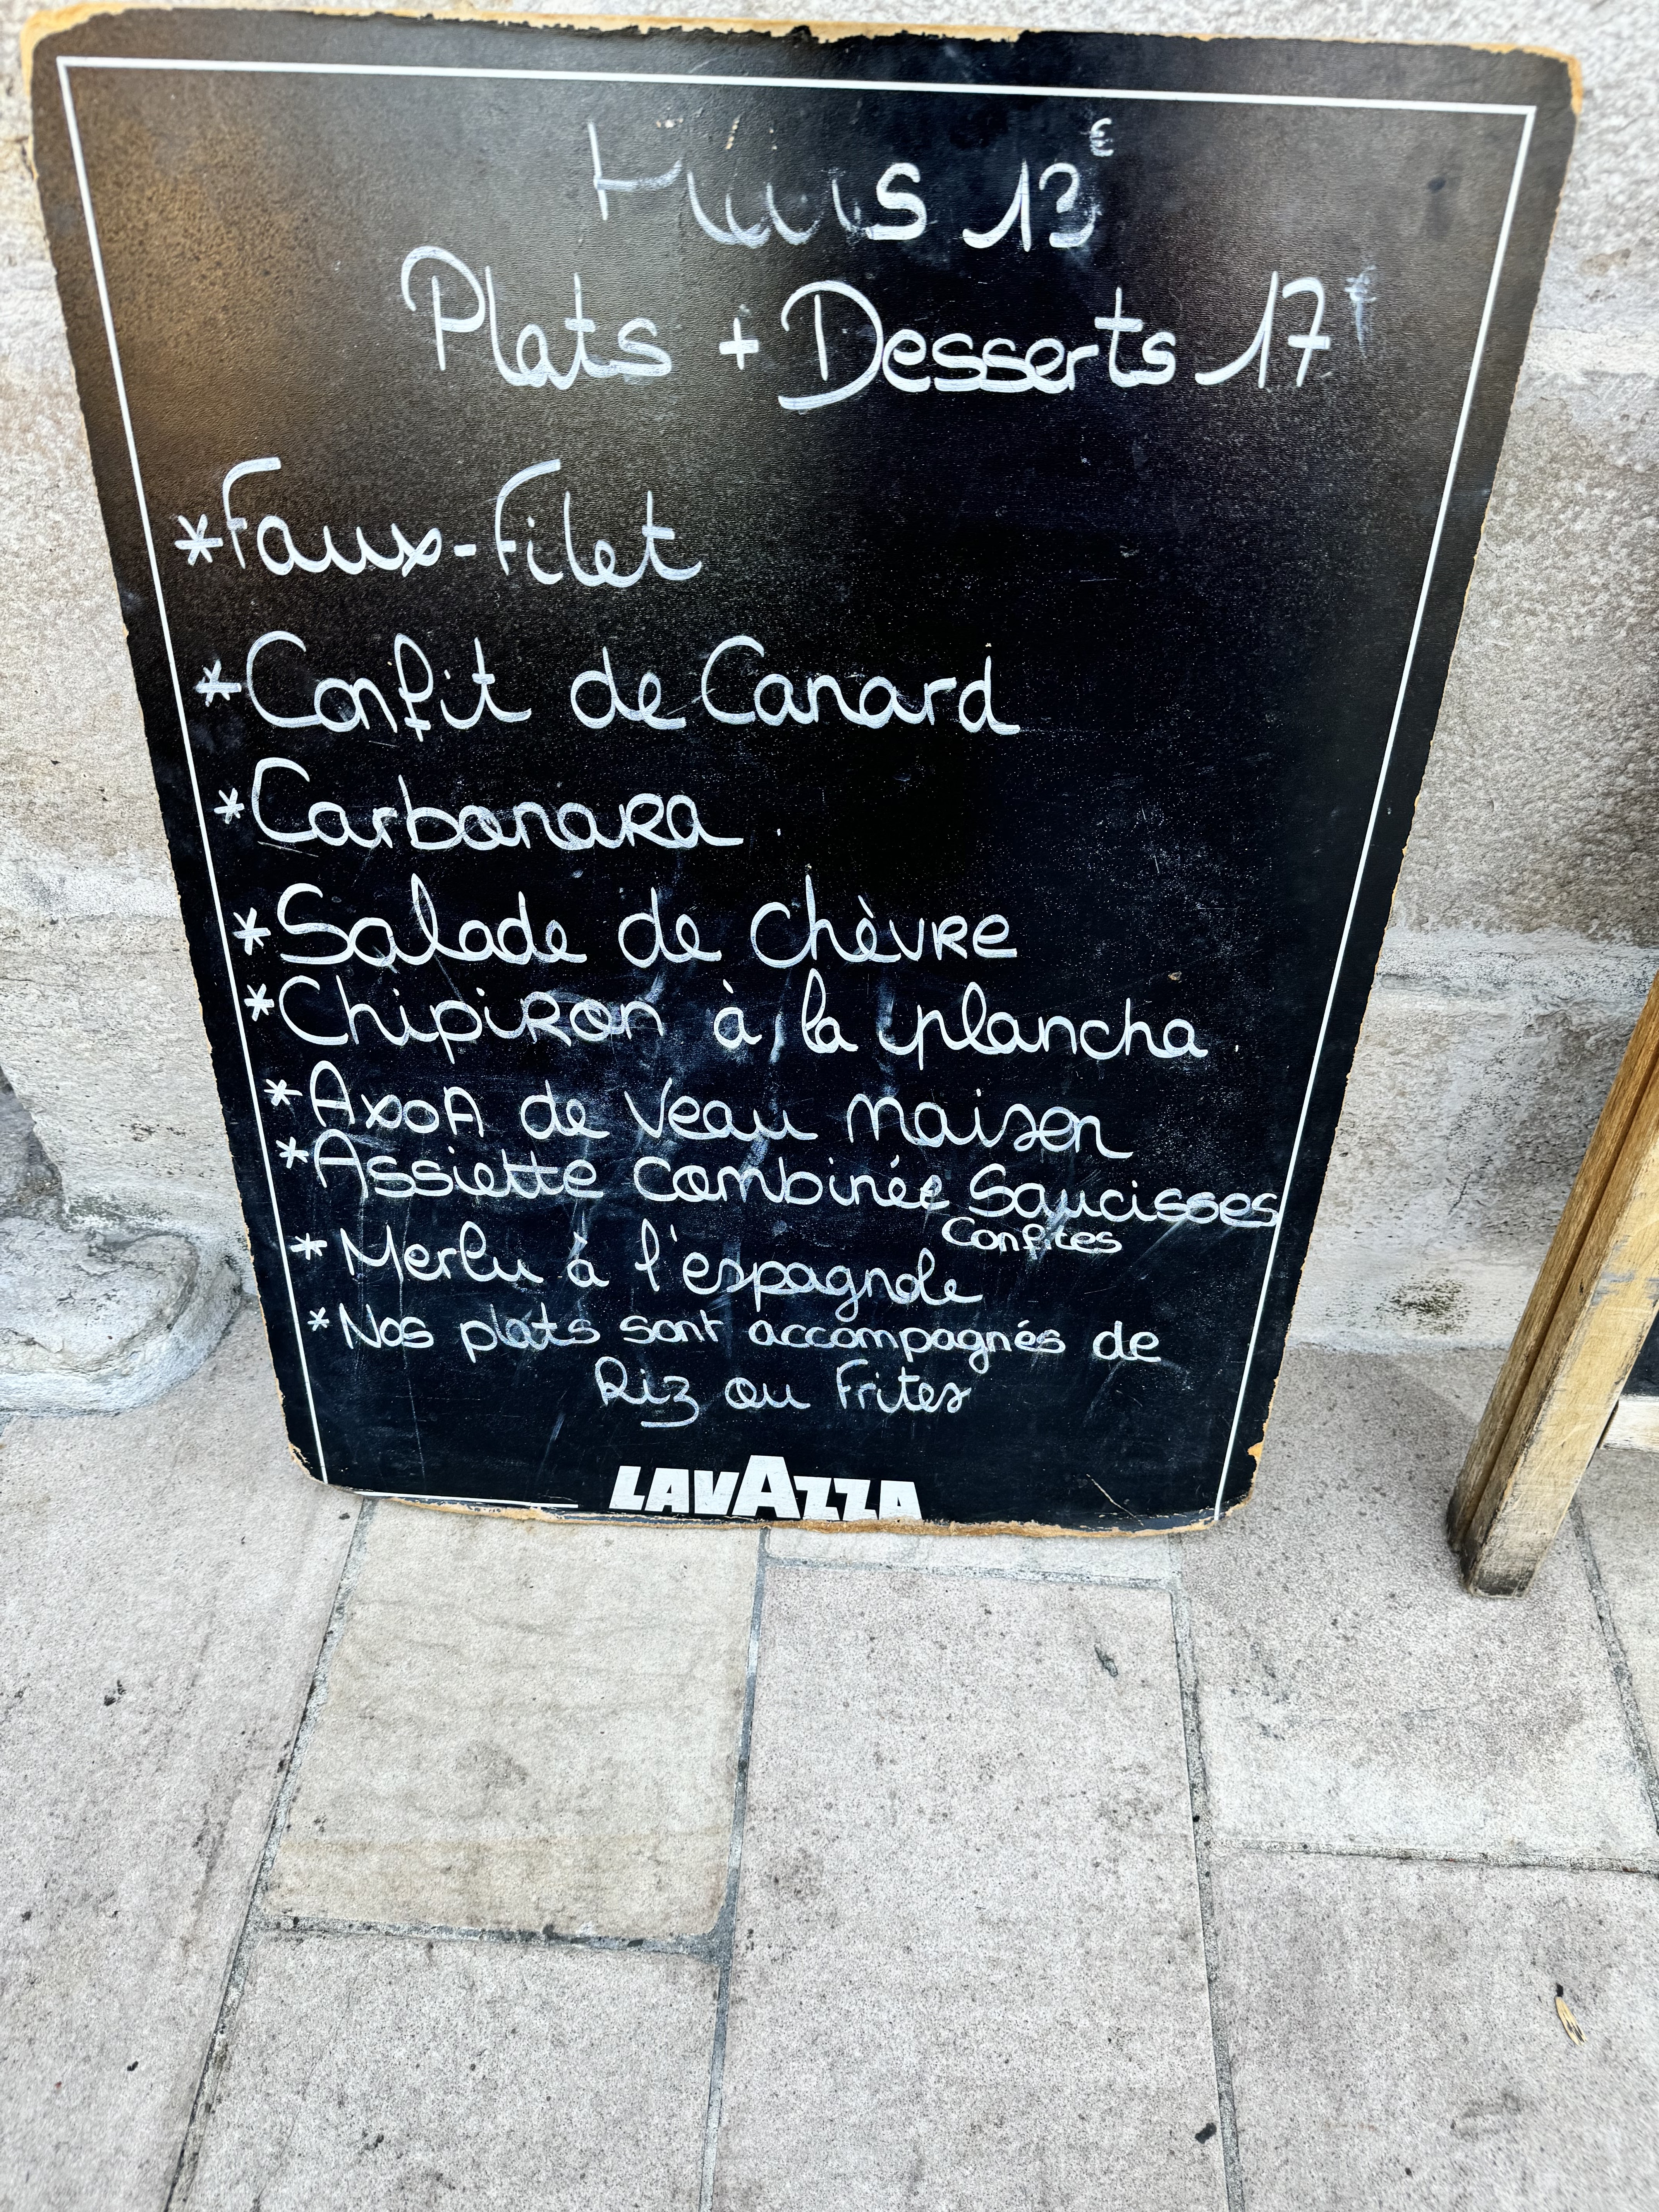 13€
Plats + Desserts 17€
*Faux-Filet
*Confit de Canard
*Carbonara
*Salade de chèvre
*Chipiron à la plancha
*AxoA de Veau maison
*Assiette combinée Saucisses
Confites
*Merlu à l'espagnole
*Nos plats sont accompagnés de
Riz ou Frites
LAVAZZA